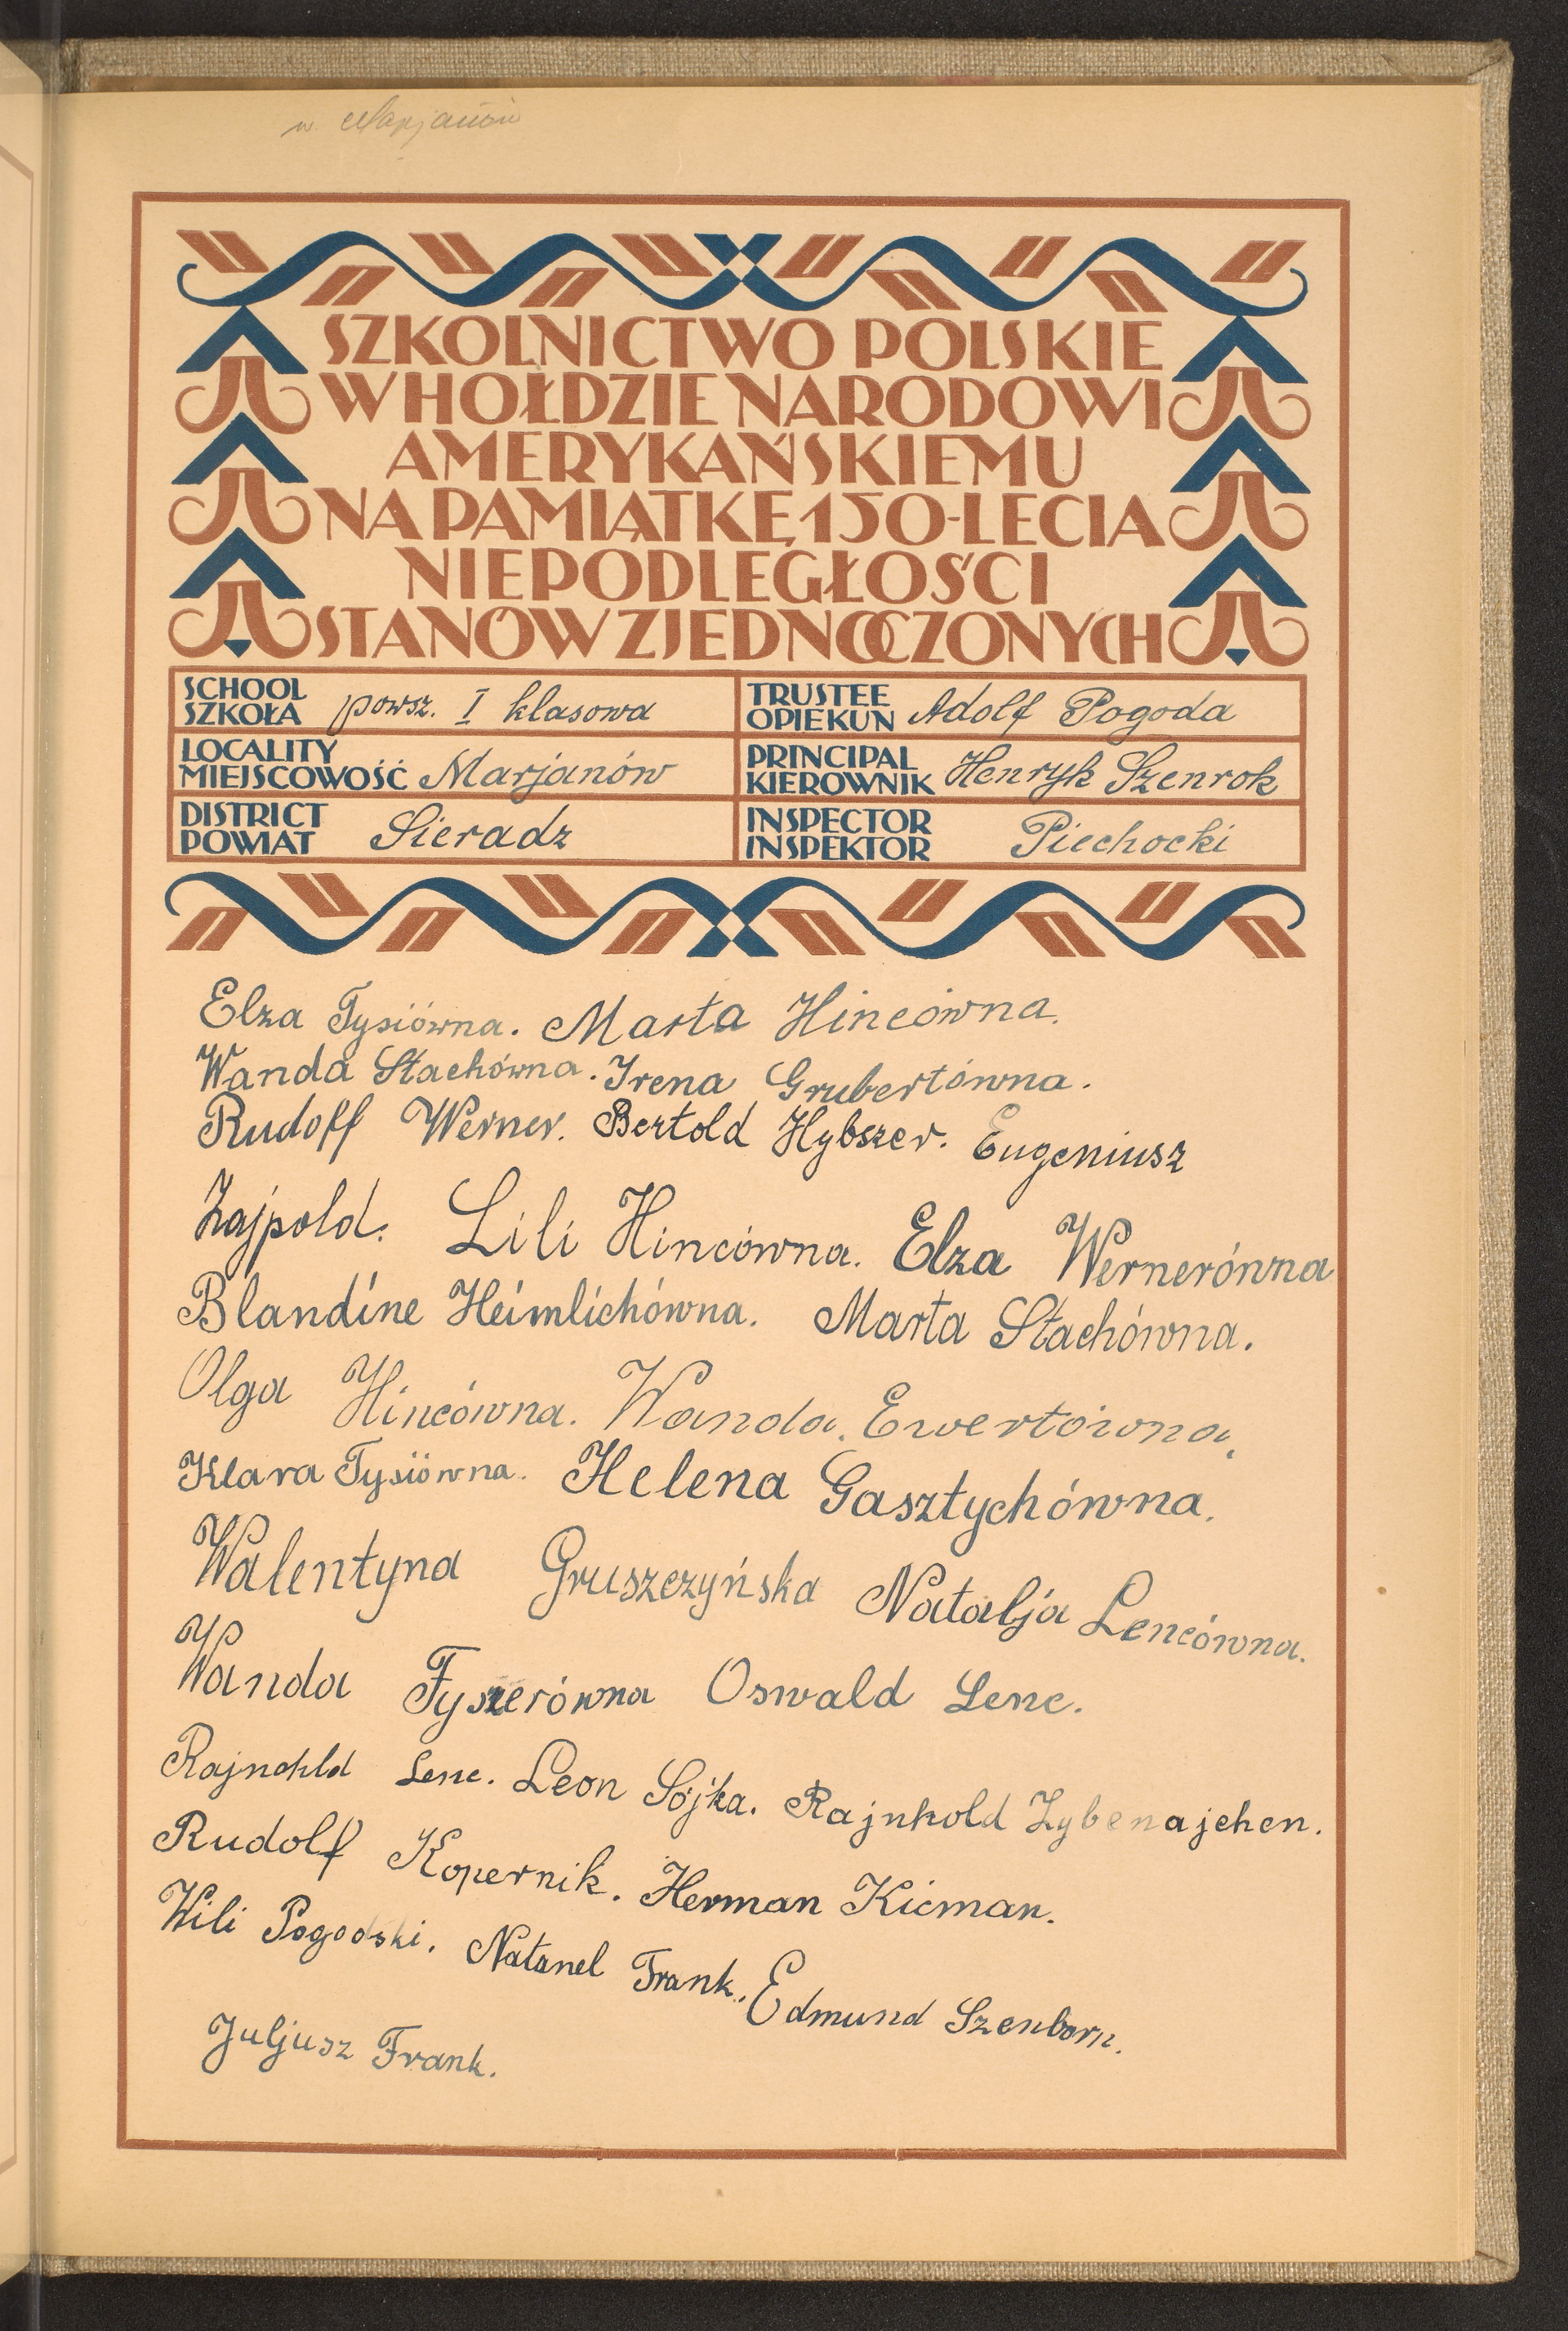 w. Marjanów
SZKOLNICTWO POLSKIE
W HOŁDZIE NARODOWI
AMERYKAŃSKIEMU
NA PAMIĄTKĘ 150-LECIA
NIEPODLEGŁOŚCI
STANÓW ZJEDNOCZONYCH
SCHOOL
SZKOŁA powsz. I klasowa
TRUSTEE
OPIEKUN Adolf Pogoda
LOCALITY
MIEJSCOWOŚĆ Marjanów
PRINCIPAL
KIEROWNIK Henryk Szenrok
DISTRICT
POWIAT Sieradz
INSPECTOR
INSPEKTOR Piechocki
Elza Tysiówna. Marta Hincówna.
Wanda Stachówna. Irena Grubertówna.
Rudolf Werner. Bertold Hybszer. Eugeniusz
Zajpold. Lili Hincówna. Elza Wernerówna
Blandine Heimlichówna. Marta Stachówna.
Olga Hincówna. Wanda. Ewertówna.
Klara Tysiówna. Helena Gasztychówna.
Walentyna Gruszczyńska Natalja Lencówna.
Wanda Fyszerówna Oswald Lenc.
Rajnohld Lenc. Leon Sójka. Rajnhold Zybenajchen.
Rudolf Kopernik. Herman Kicman.
Wili Pogodski. Natanel Frank. Edmund Szenborn.
Juljusz Frank.